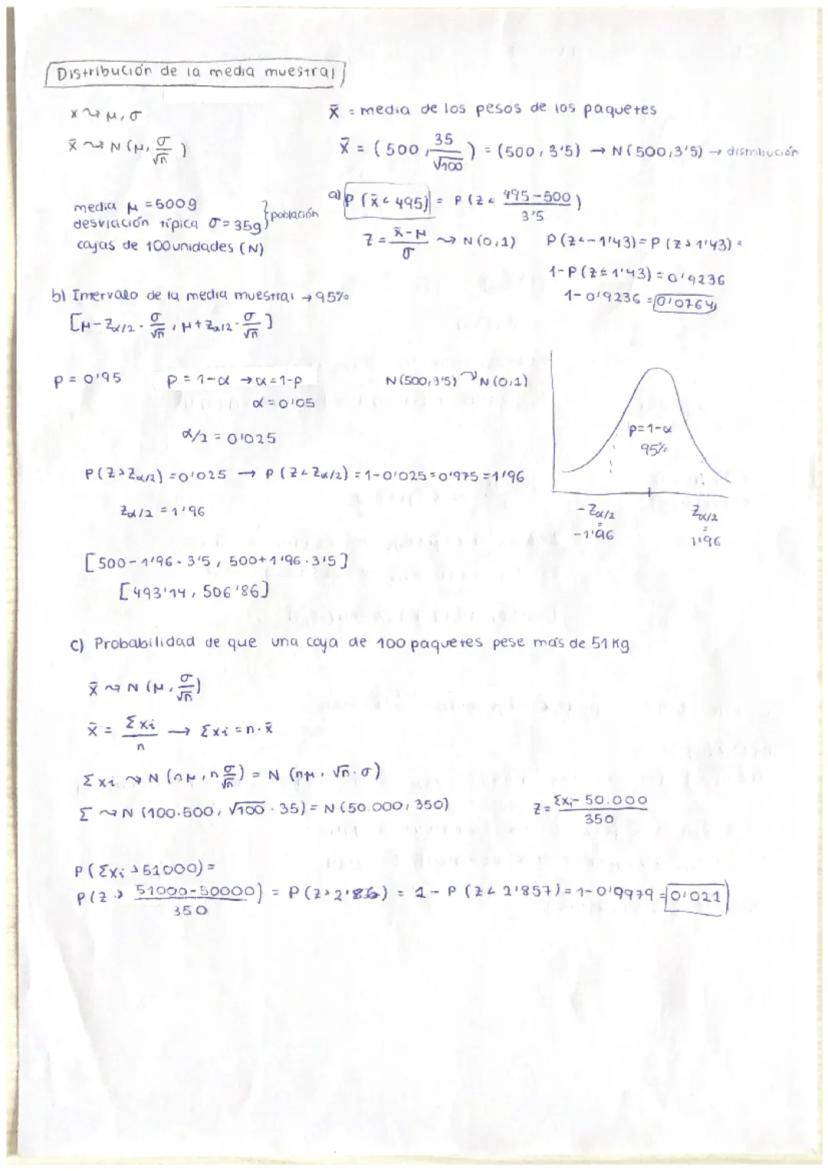 Distribución de la media muestral
x ⤳ μ, σ
x̄ ⤳ N (μ, σ/√n)
x̄ = media de los pesos de los paquetes
x̄ = (500, 35/√100) = (500, 3'5) → N(500, 3'5) → distribución
media μ = 500g
desviación típica σ = 35g } población
cajas de 100 unidades (N)
a) P (x̄ < 495) = P (Z < 495-500/3'5)
Z = x̄-μ/σ ⤳ N(0,1)
P(Z<-1'43) = P(Z>1'43) =
1-P(Z≤1'43) = 0'9236
1-0'9236 = 0'0764
b) Intervalo de la media muestral → 95%
[μ-Zα/2 · σ/√n, μ+Zα/2 · σ/√n]
p = 0'95 p = 1-α → α = 1-p N(500,3'5) ⤳ N(0,1)
α = 0'05
α/2 = 0'025
P(Z>Zα/2) = 0'025 → P(Z<Zα/2) = 1-0'025 = 0'975 = 1'96
Zα/2 = 1'96
p=1-α
95%
-Zα/2 Zα/2
= =
-1'96 1'96
[500-1'96 · 3'5, 500+1'96 · 3'5]
[493'14, 506'86]
c) Probabilidad de que una caja de 100 paquetes pese mas de 51 Kg
x̄ ⤳ N (μ, σ/√n)
x̄ = Σxi/n → Σxi = n · x̄
Σxi ⤳ N (nμ, n σ/√n) = N (nμ, √n · σ)
Σ ⤳ N (100·500, √100 · 35) = N (50.000, 350) Z = Σxi - 50.000/350
P(Σxi > 51000) =
P(Z > 51000-50000/350) = P(Z>2'86) = 1 - P(Z<2'857) = 1-0'9979 = 0'021